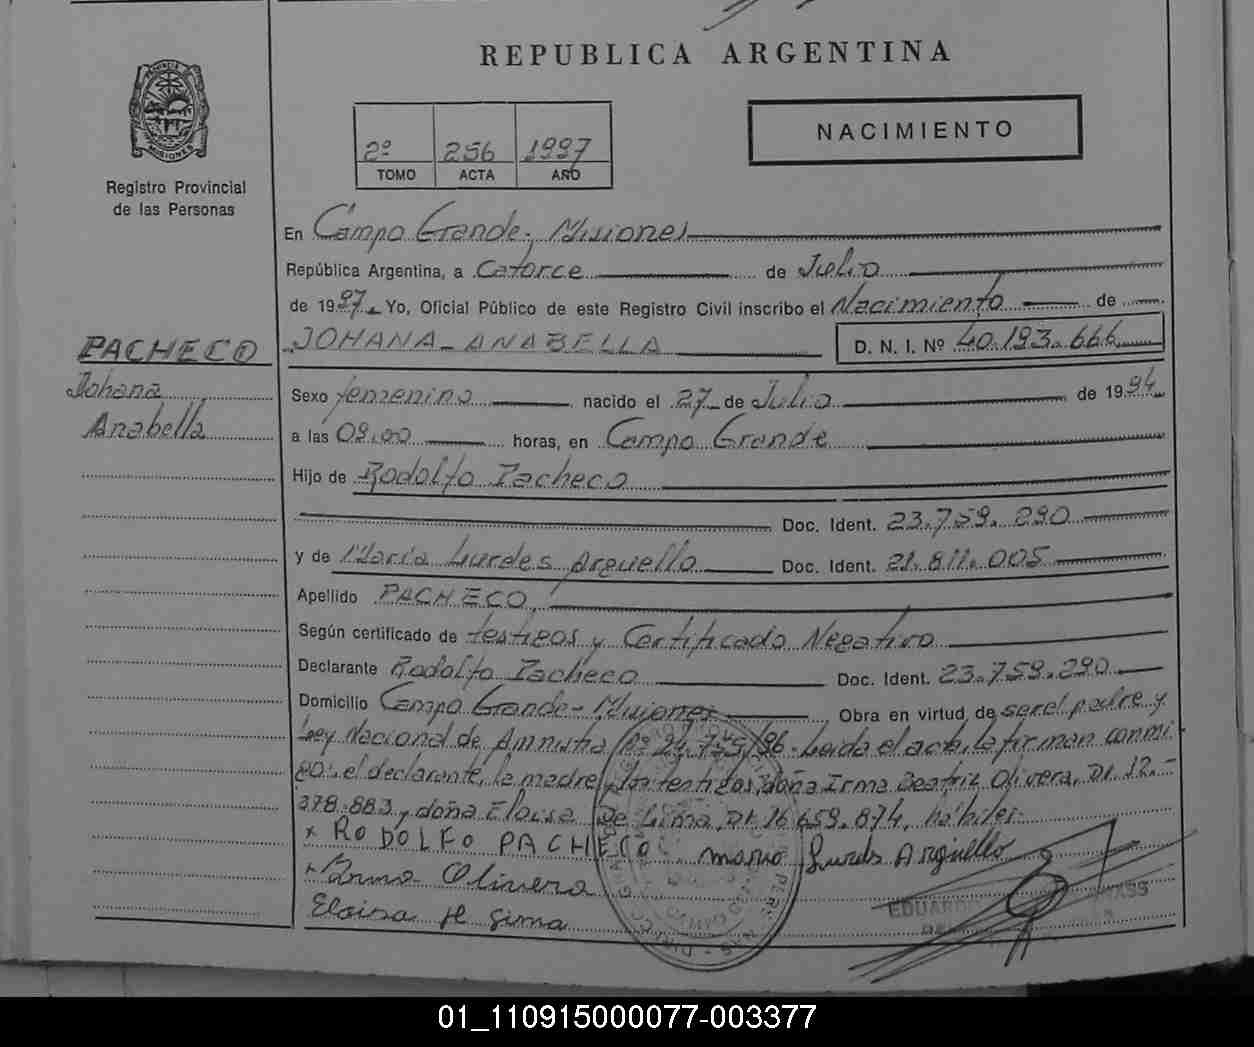 REPUBLICA ARGENTINA
PROVINCIA DE MISIONES
Registro Provincial
de las Personas
2º 256 1997
TOMO ACTA AÑO
NACIMIENTO
En Campo Grande, Misiones
República Argentina, a Catorce de Julio
de 1997 Yo, Oficial Público de este Registro Civil inscribo el Nacimiento de
PACHECO
Johana
Anabella
JOHANA ANABELLA D. N. I. Nº 40.193.666
Sexo femenino nacido el 27 de Julio de 1994
a las 09,00 horas, en Campo Grande
Hijo de Rodolfo Pacheco
Doc. Ident. 23.759.290
y de Maria Lurdes Arguello Doc. Ident. 21.811.005
Apellido PACHECO,
Según certificado de testigos y Certificado Negativo
Declarante Rodolfo Pacheco Doc. Ident. 23.759.290
Domicilio Campo Grande - Misiones Obra en virtud de ser el padre y
Ley Nacional de Amnistia Nº 24.755/96. Leida el acta, la firman conmi
go: el declarante, la madre y los testigos, doña Irma Beatriz Olivera, DI. 12.-
278.883, doña Eloisa De Lima, DI. 16.659.874, hábiles.
x RODOLFO PACHECO Maria Lurdes Arguello
Irma Olivera
Eloisa
EDUARDO
01_110915000077-003377